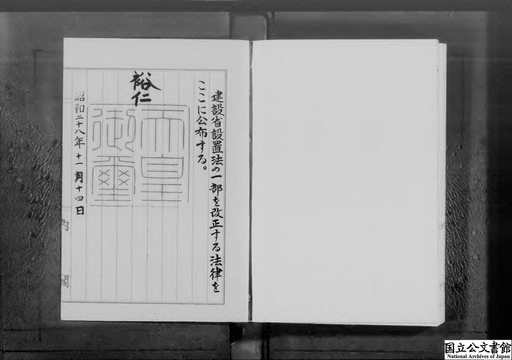 建設省設置法の一部を改正する法律を
ここに公布する。
裕仁
天皇
御璽
昭和二十八年十一月十四日
内閣
国立公文書館
National Archives of Japan